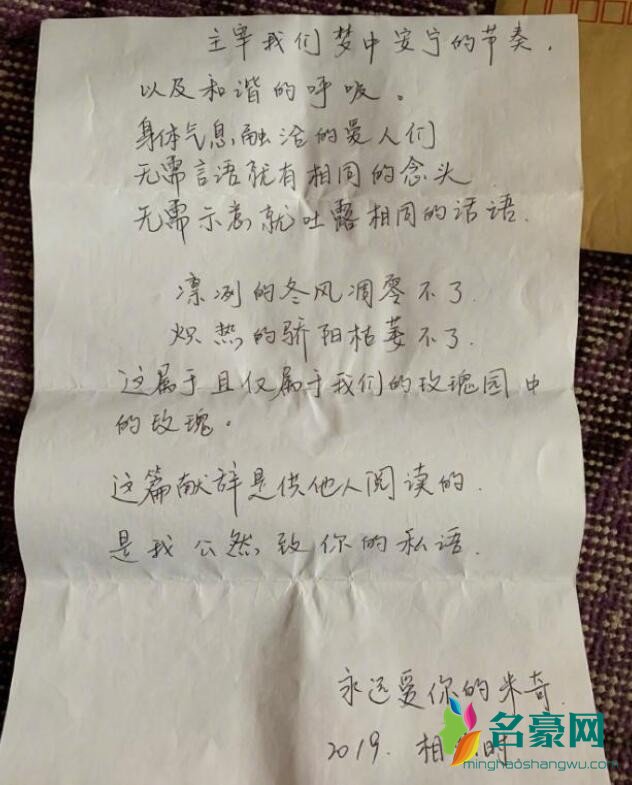 主宰我们梦中安宁的节奏，
以及和谐的呼吸。
身体气息融洽的爱人们
无需言语就有相同的念头
无需示意就吐露相同的话语.
凛冽的冬风凋零不了.
炽热的骄阳枯萎不了.
这属于且仅属于我们的玫瑰园中
的玫瑰。
这篇献辞是供他人阅读的.
是我公然致你的私语.
永远爱你的米奇.
2019. 相 时
名豪网
minghaoshangwu.com